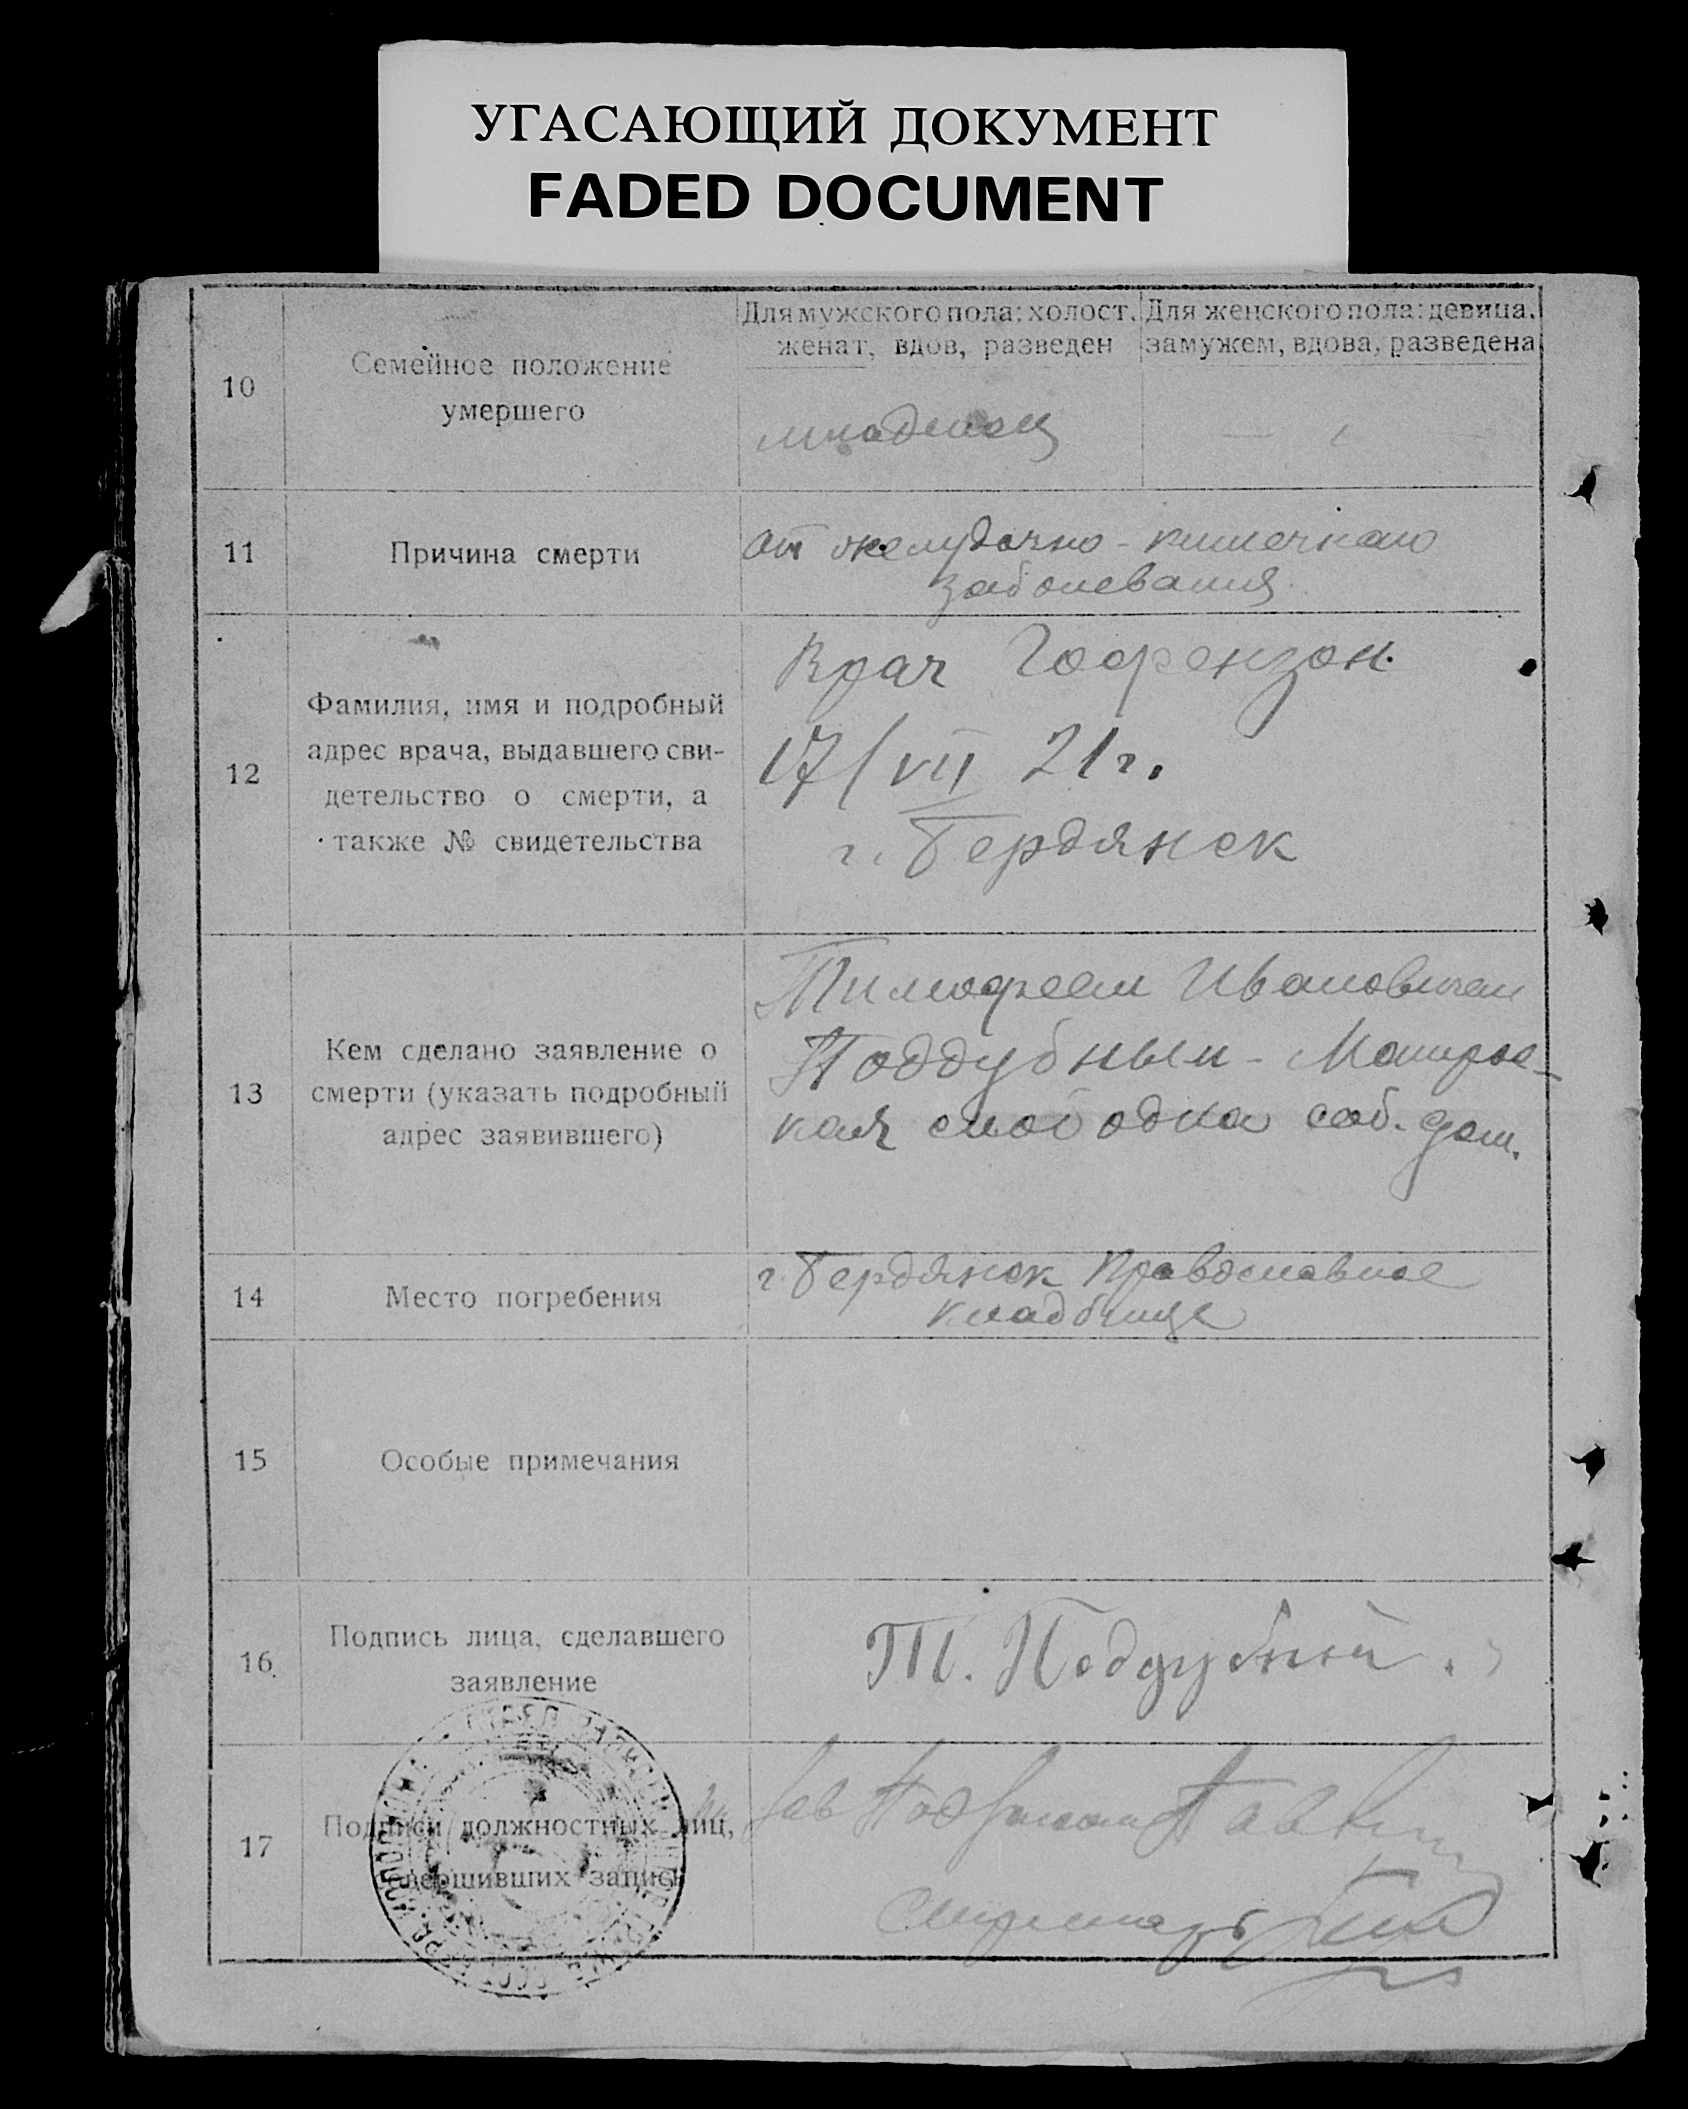 УГАСАЮЩИЙ ДОКУМЕНТ
FADED DOCUMENT
10
Семейное положение
умершего
Для мужского пола: холост,
женат, вдов, разведен
Для женского пола: девица,
замужем, вдова, разведена
младенец
11
Причина смерти
от желудочно-кишечного
заболевания
12
Фамилия, имя и подробный
адрес врача, выдавшего сви-
детельство о смерти, а
также № свидетельства
Врач Гофензон.
17/VII 21 г.
г. Бердянск
13
Кем сделано заявление о
смерти (указать подробный
адрес заявившего)
Тимофеем Ивановичем
Поддубным - Матрос-
кая слободка соб. дом.
14
Место погребения
г. Бердянск Православное
кладбище
15
Особые примечания
16
Подпись лица, сделавшего
заявление
Т. Поддубный.
17
Подписи должностных лиц,
совершивших запись
Зав
Секретарь